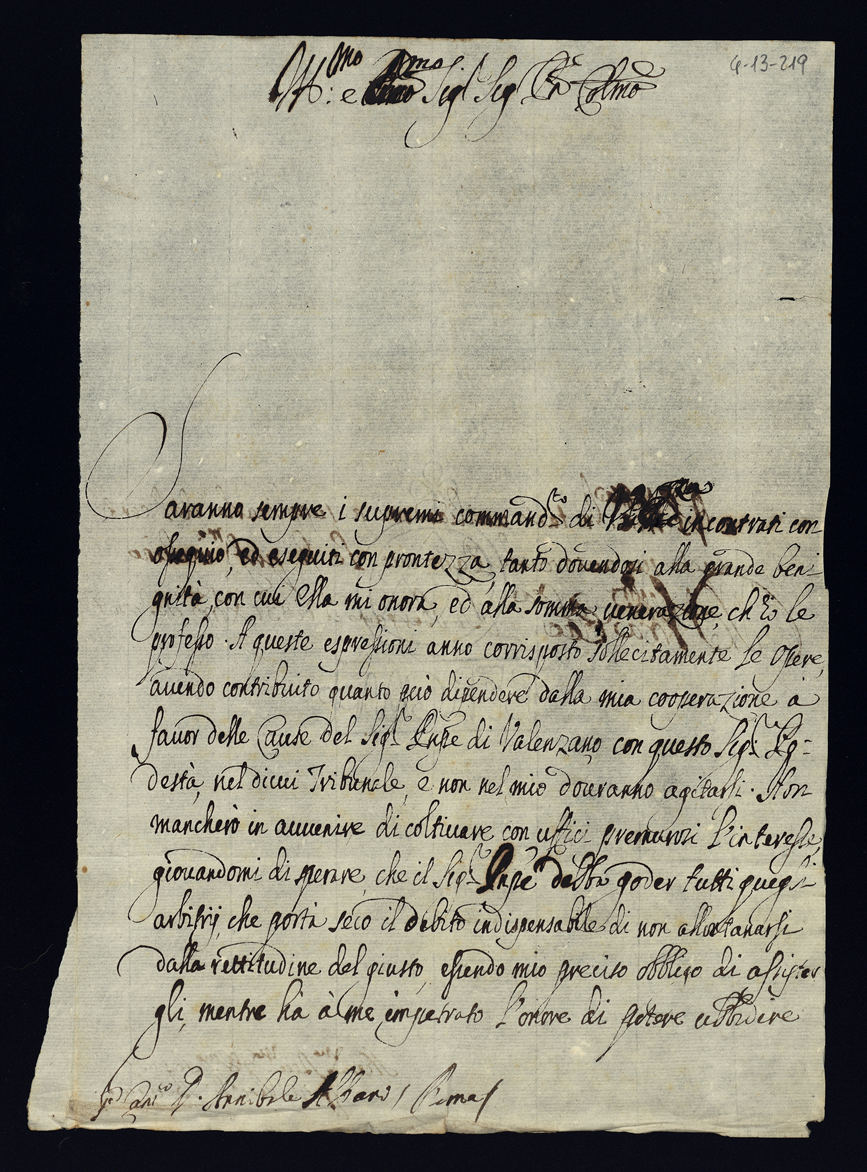 4-13-219
Ill.mo e Sig.r Sig.r P.ne Col.mo
Saranno sempre i supremi command.ti di incontrati con
ossequio, ed eseguiti con prontezza, tanto dovendosi alla grande beni-
gnità, con cui Ella mi onora, ed alla somma venerazione, ch'Io le
professo. A queste espressioni anno corrisposto sollecitamente le Opere,
avendo contribuito quanto può dipendere dalla mia cooperazione à
favor delle Cause del Sig.r Pnpe di Valenzano con questo Sig.r Po-
destà, nel di cui Tribunale, e non nel mio dovranno agitarsi. Non
mancherò in avvenire di coltivare con uffici premurosi l'interesse,
giovandomi di sperare, che il Sig.r Pnpe debba goder tutti quegli
arbitrij, che porta seco il debito indispensabile di non allontanarsi
dalla rettitudine del giusto, essendo mio preciso obbligo di assister
gli, mentre hà à me impetrato l'onore di potere ubbidire
D. Annibale Albani Roma